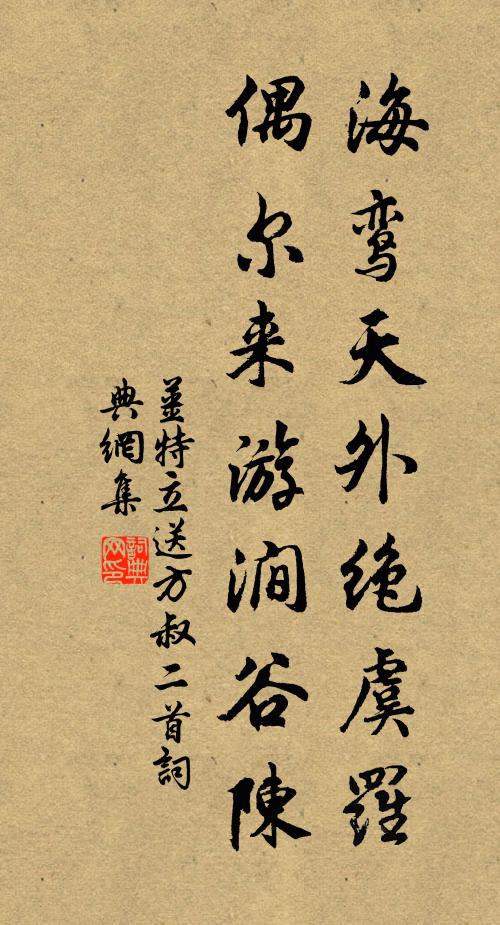 海鸾天外绝虞罗
偶尔来游涧谷陳
姜特立送方叔二首詞
典網集
詞典网印